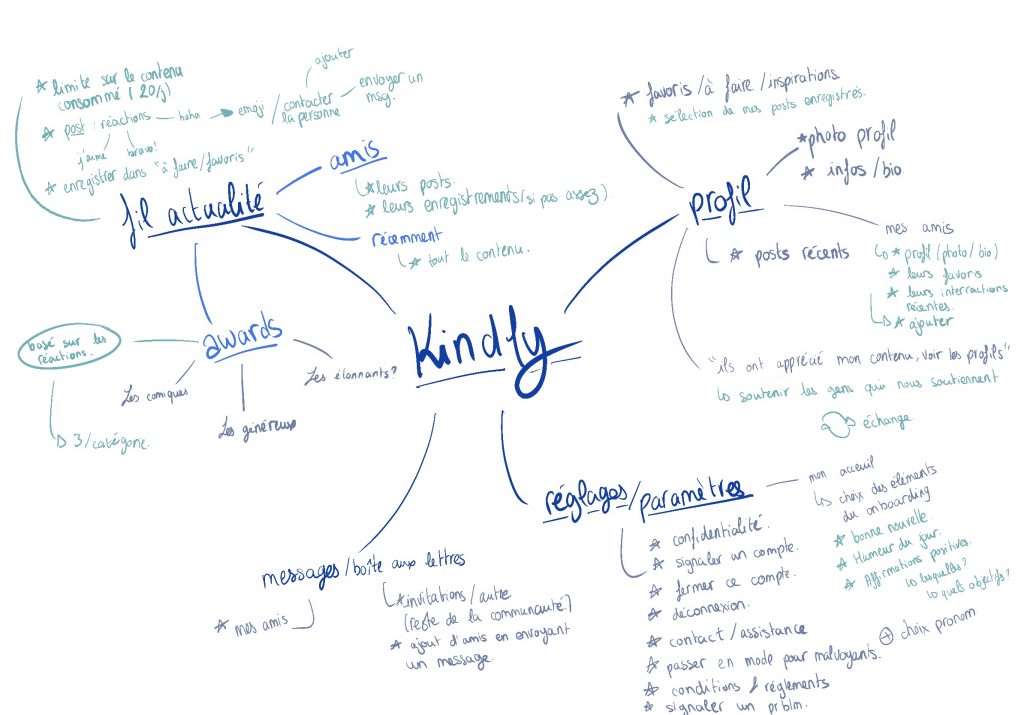 ★ limite sur le contenu
consommé (20/j)
★ post : réactions
haha
emoji / contacter
la personne
ajouter
envoyer un
msg.
j'aime
bravo!
★ enregistrer dans "à faire/favoris"
fil actualité
amis
★ leurs posts.
★ leurs enregistrements/si pas assez)
récemment
★ tout le contenu.
awards
basé sur les
réactions.
3/catégorie.
Les comiques
Les généreux
Les étonnants?
Kindly
★ favoris/à faire/inspirations.
★ sélection de mes posts enregistrés.
profil
★ photo profil
★ infos/bio
★ posts récents
mes amis
★ profil (photo/bio)
★ leurs favoris
★ leurs interractions
récentes.
★ ajouter
"ils ont apprécié mon contenu, voir les profils"
soutenir les gens qui nous soutiennent
échange.
réglages/paramètres
★ confidentialité.
★ signaler un compte.
★ fermer ce compte.
★ déconnexion.
★ contact/assistance
★ passer en mode pour malvoyants.
★ conditions & réglements
★ signaler un prblm.
mon acceuil
choix des éléments
du onboarding
★ bonne nouvelle.
★ Humeur du jour.
★ Affirmations positives.
lesquelles?
quels objectifs?
⊕ choix pronom
messages/boîte aux lettres
★ mes amis
★ invitations/autre
(reste de la communauté)
★ ajout d'amis en envoyant
un message.